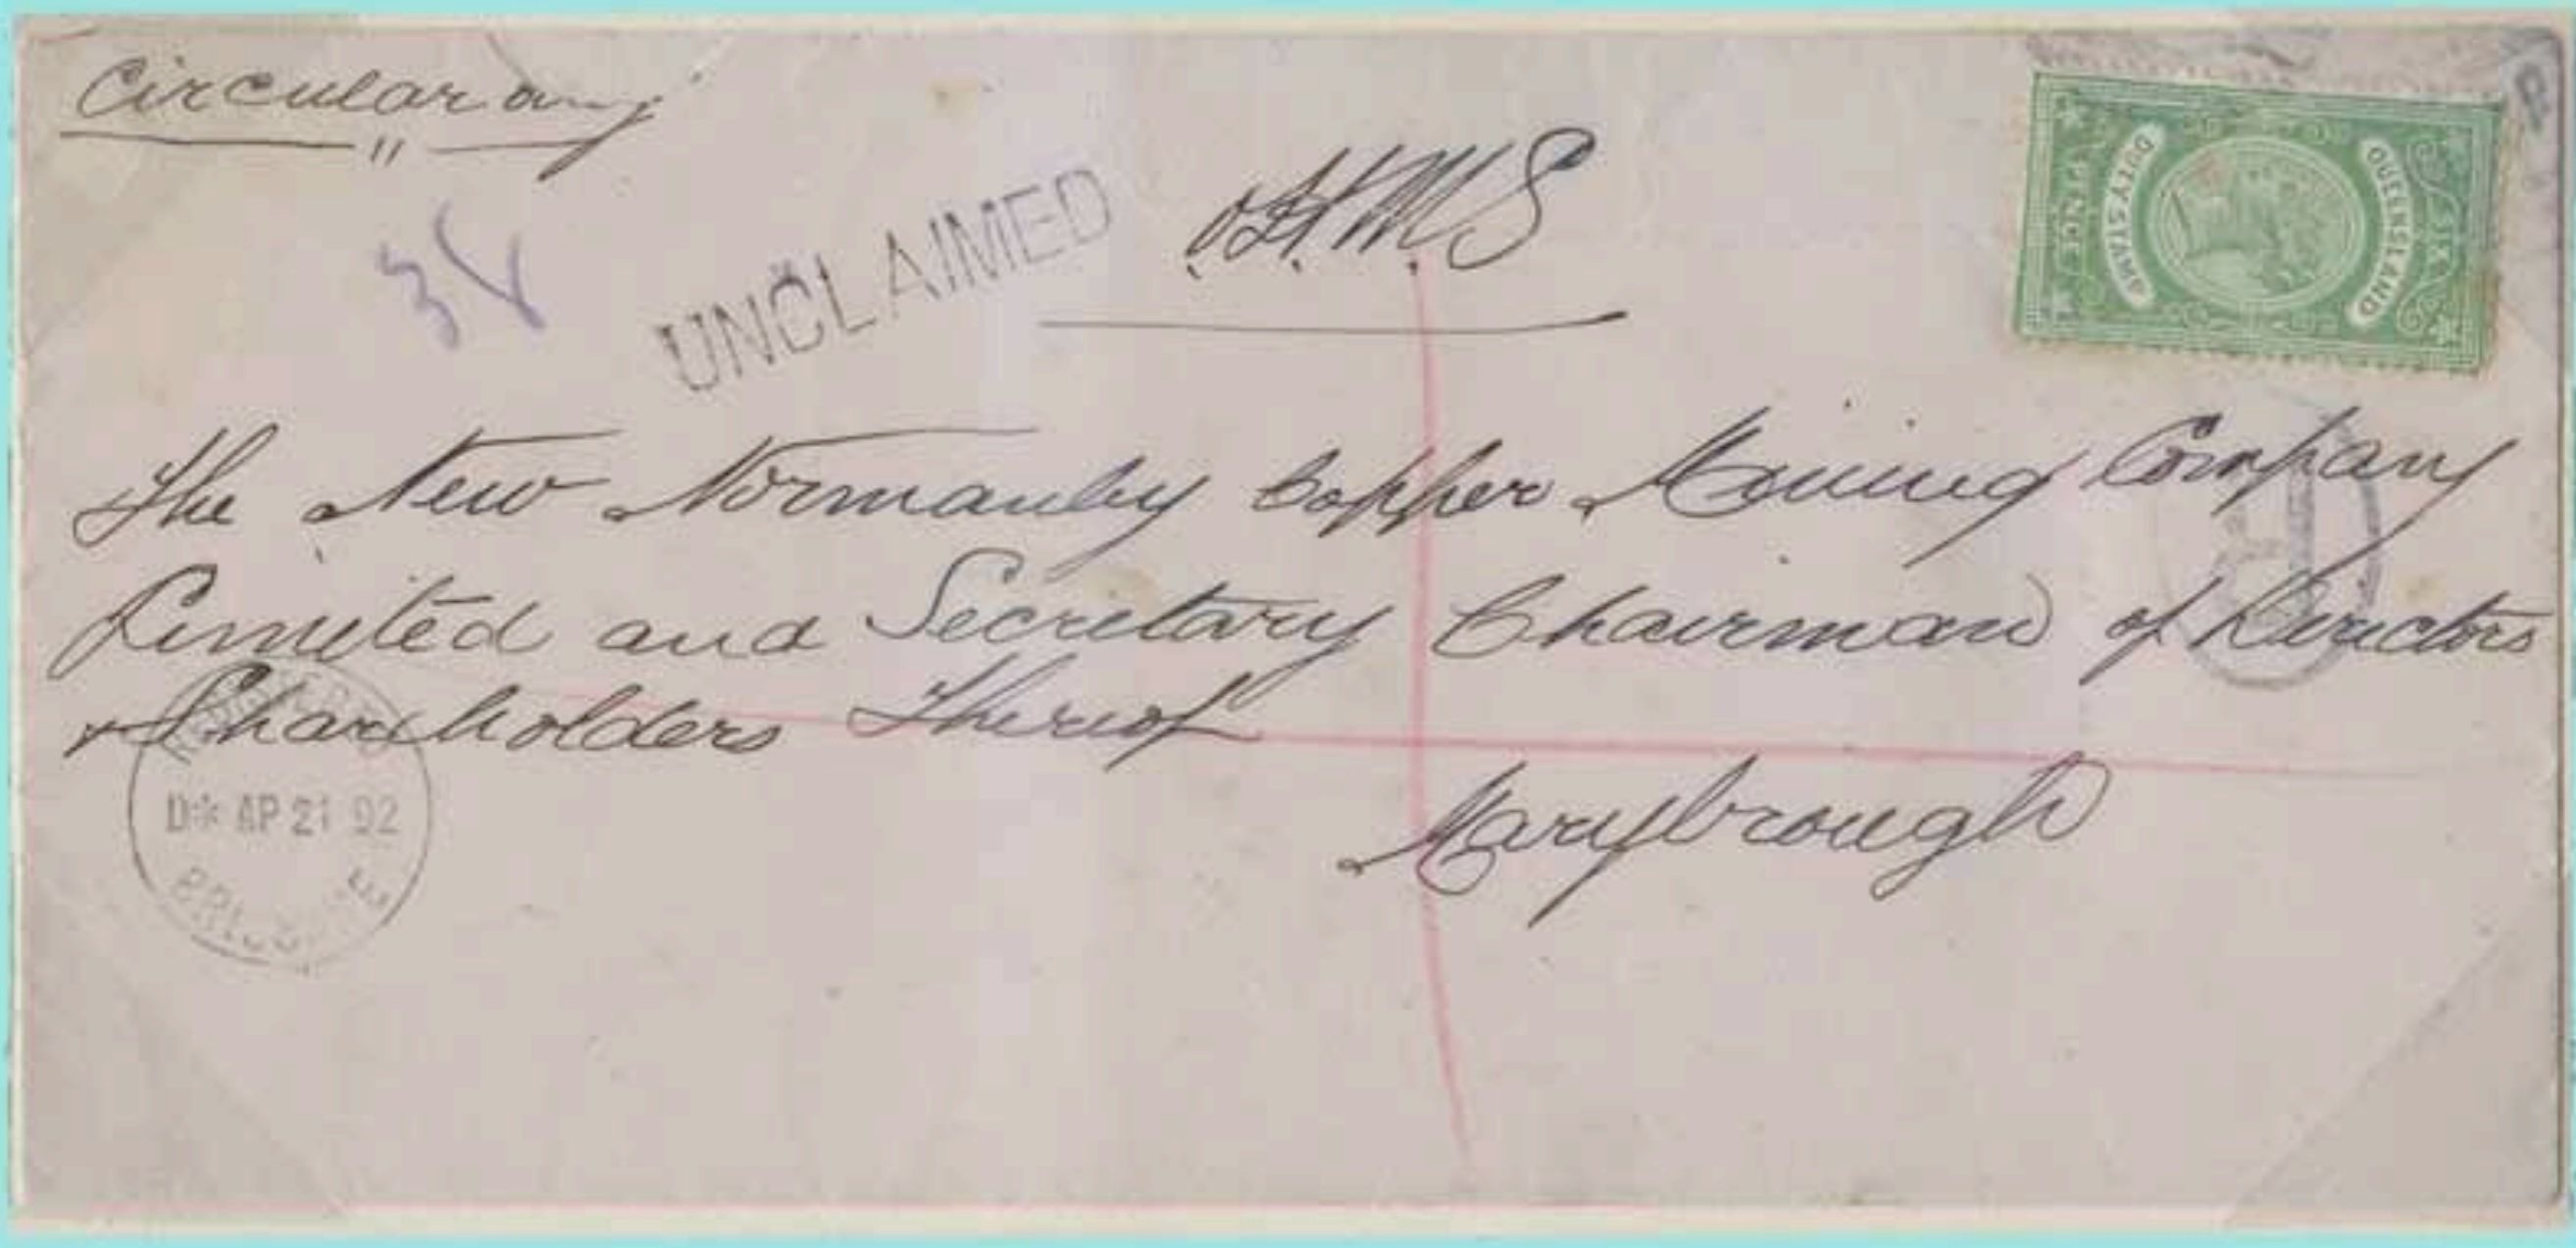 Circular only
38
UNCLAIMED
O.H.M.S
QUEENSLAND
STAMP DUTY
SIX
PENCE
The New Normanby Copper Mining Company
Limited and Secretary Chairman of Directors
& Shareholders Thereof
Marybrough
REGISTERED
D* AP 21 92
BRISBANE